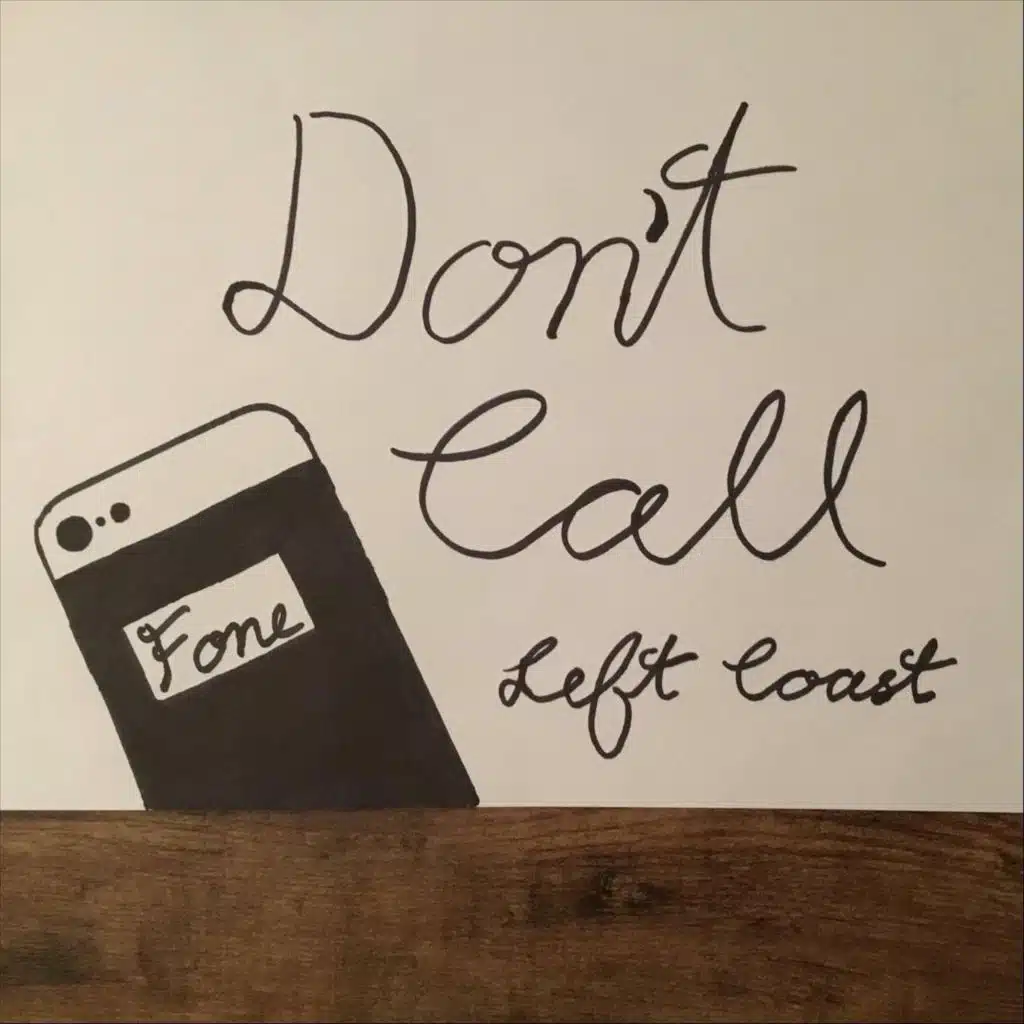 Don't
Call
Fone
Left Coast